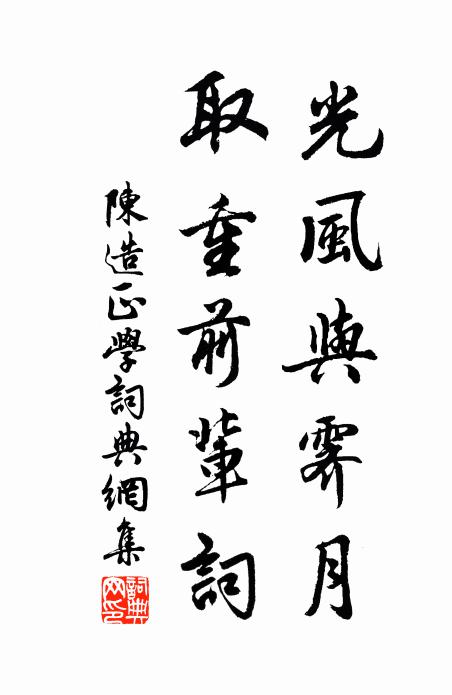 光風與霽月
取重前輩詞
陳造正學詞典網集
詞典網印